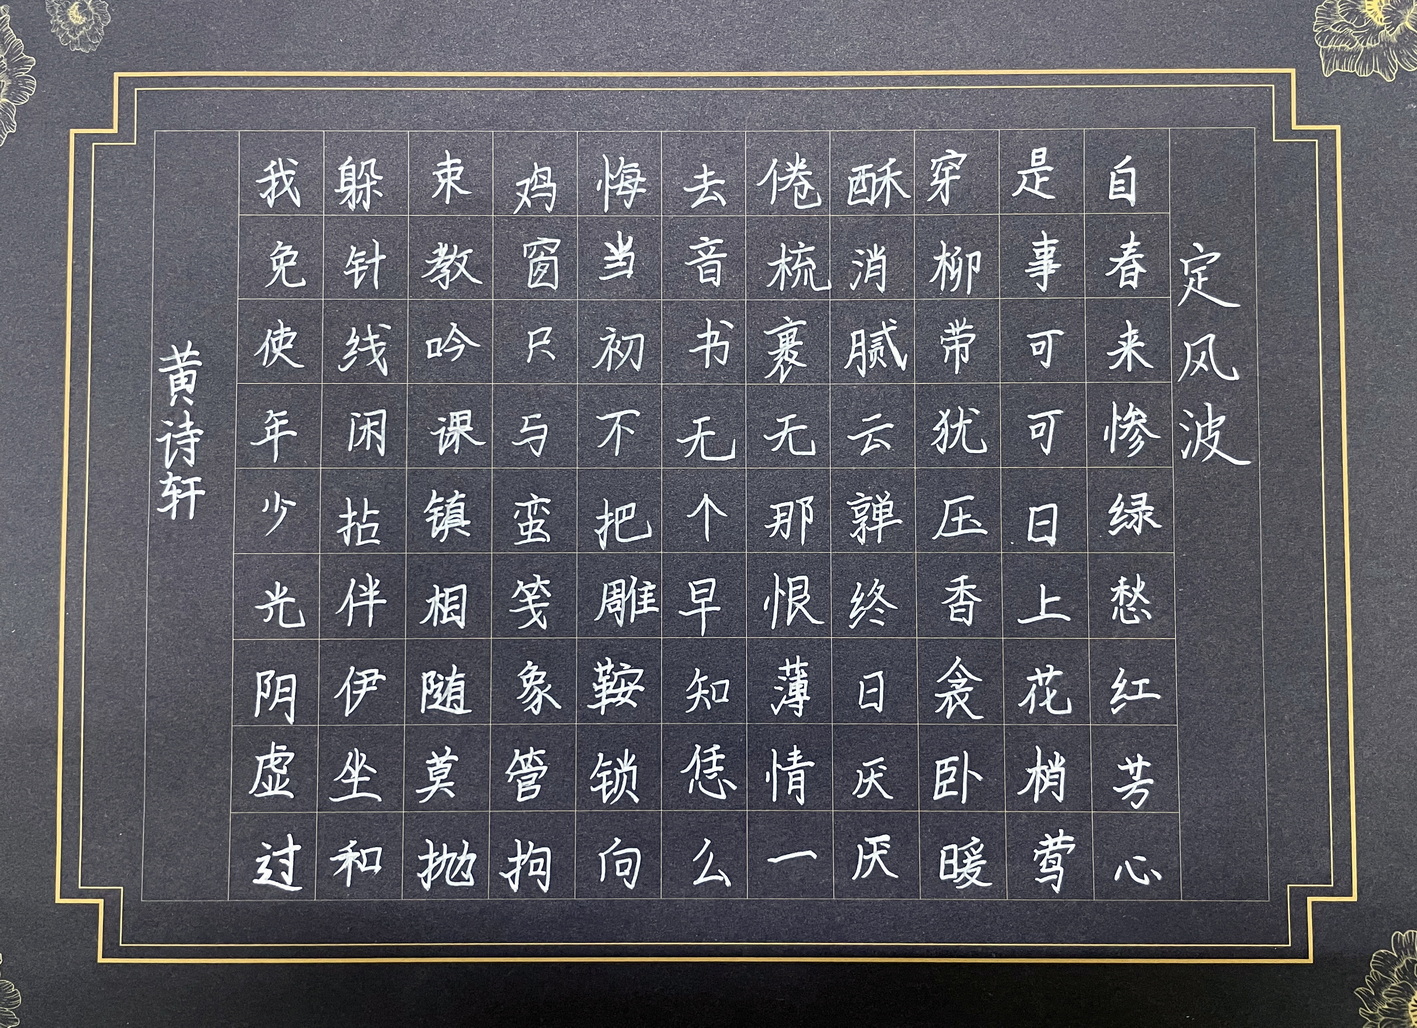 定风波
自春来惨绿愁红芳心
是事可可日上花梢莺
穿柳带犹压香衾卧暖
酥消腻云亸终日厌厌
倦梳裹无那恨薄情一
去音书无个早知恁么
悔当初不把雕鞍锁向
鸡窗只与蛮笺象管拘
束教吟课镇相随莫抛
躲针线闲拈伴伊坐和
我免使年少光阴虚过
黄诗轩